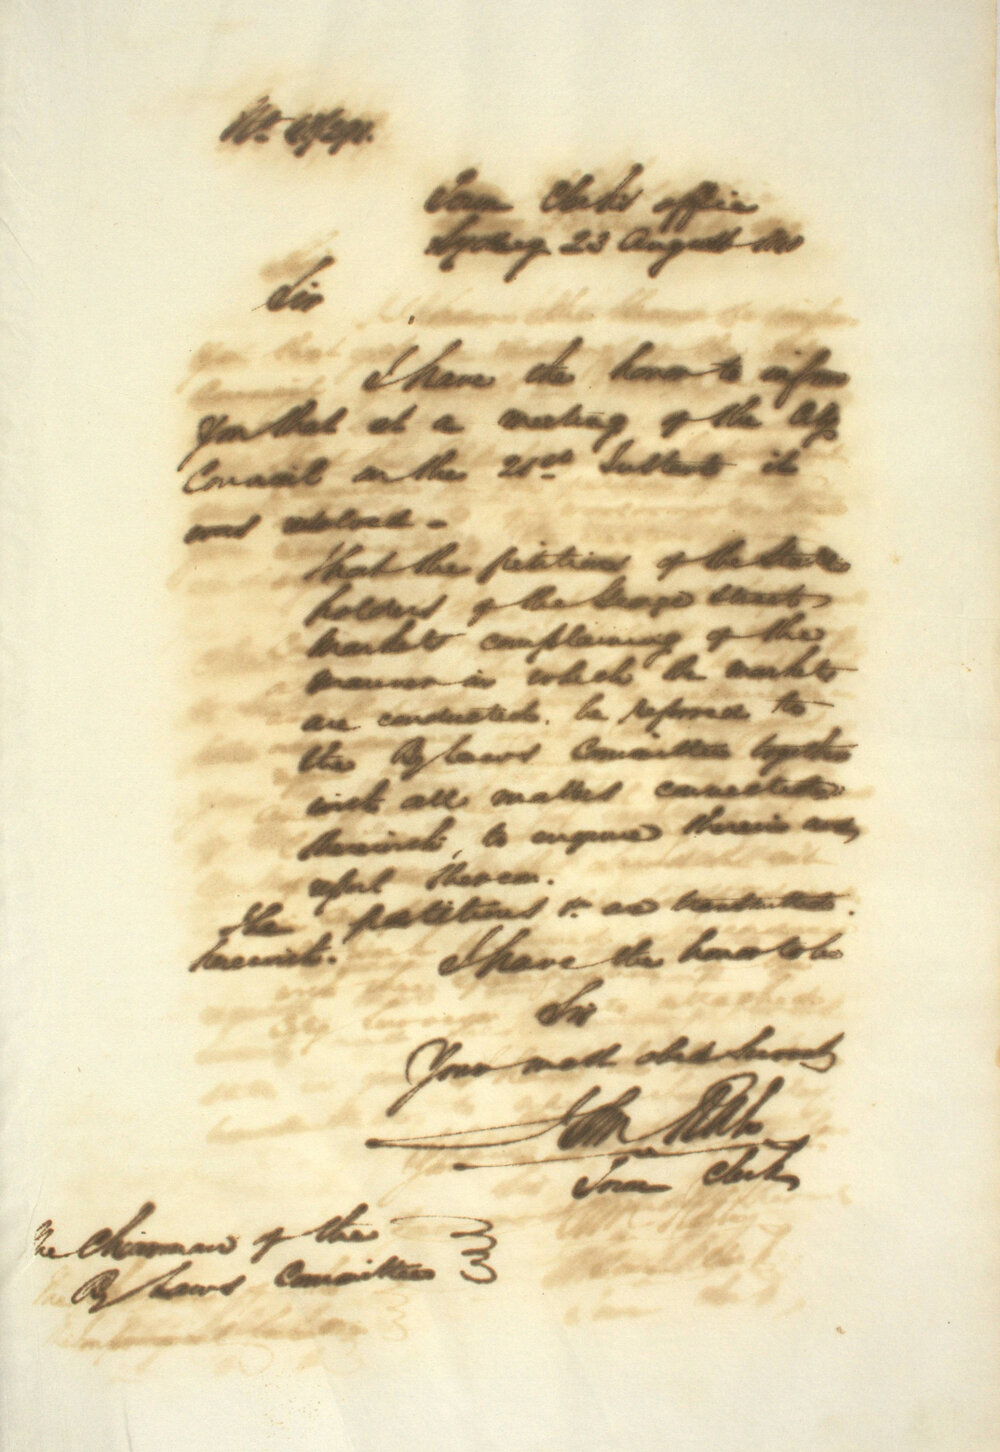 Town Clerk's office
Sydney 23 August
Sir
I have the honor to inform
you that at a meeting of the City
Council on the 21st Instant it
was resolved -
That the petitions of the Stall
holders of the George Street
Markets complaining of the
manner in which the markets
are conducted. be referred to
the By Laws Committee together
with all matters connected
therewith, to enquire therein and
report thereon.
The petitions are transmitted
herewith.
I have the honor to be
Sir
Your most obedt Servant
Town Clerk
The Chairman of the
By Laws Committee